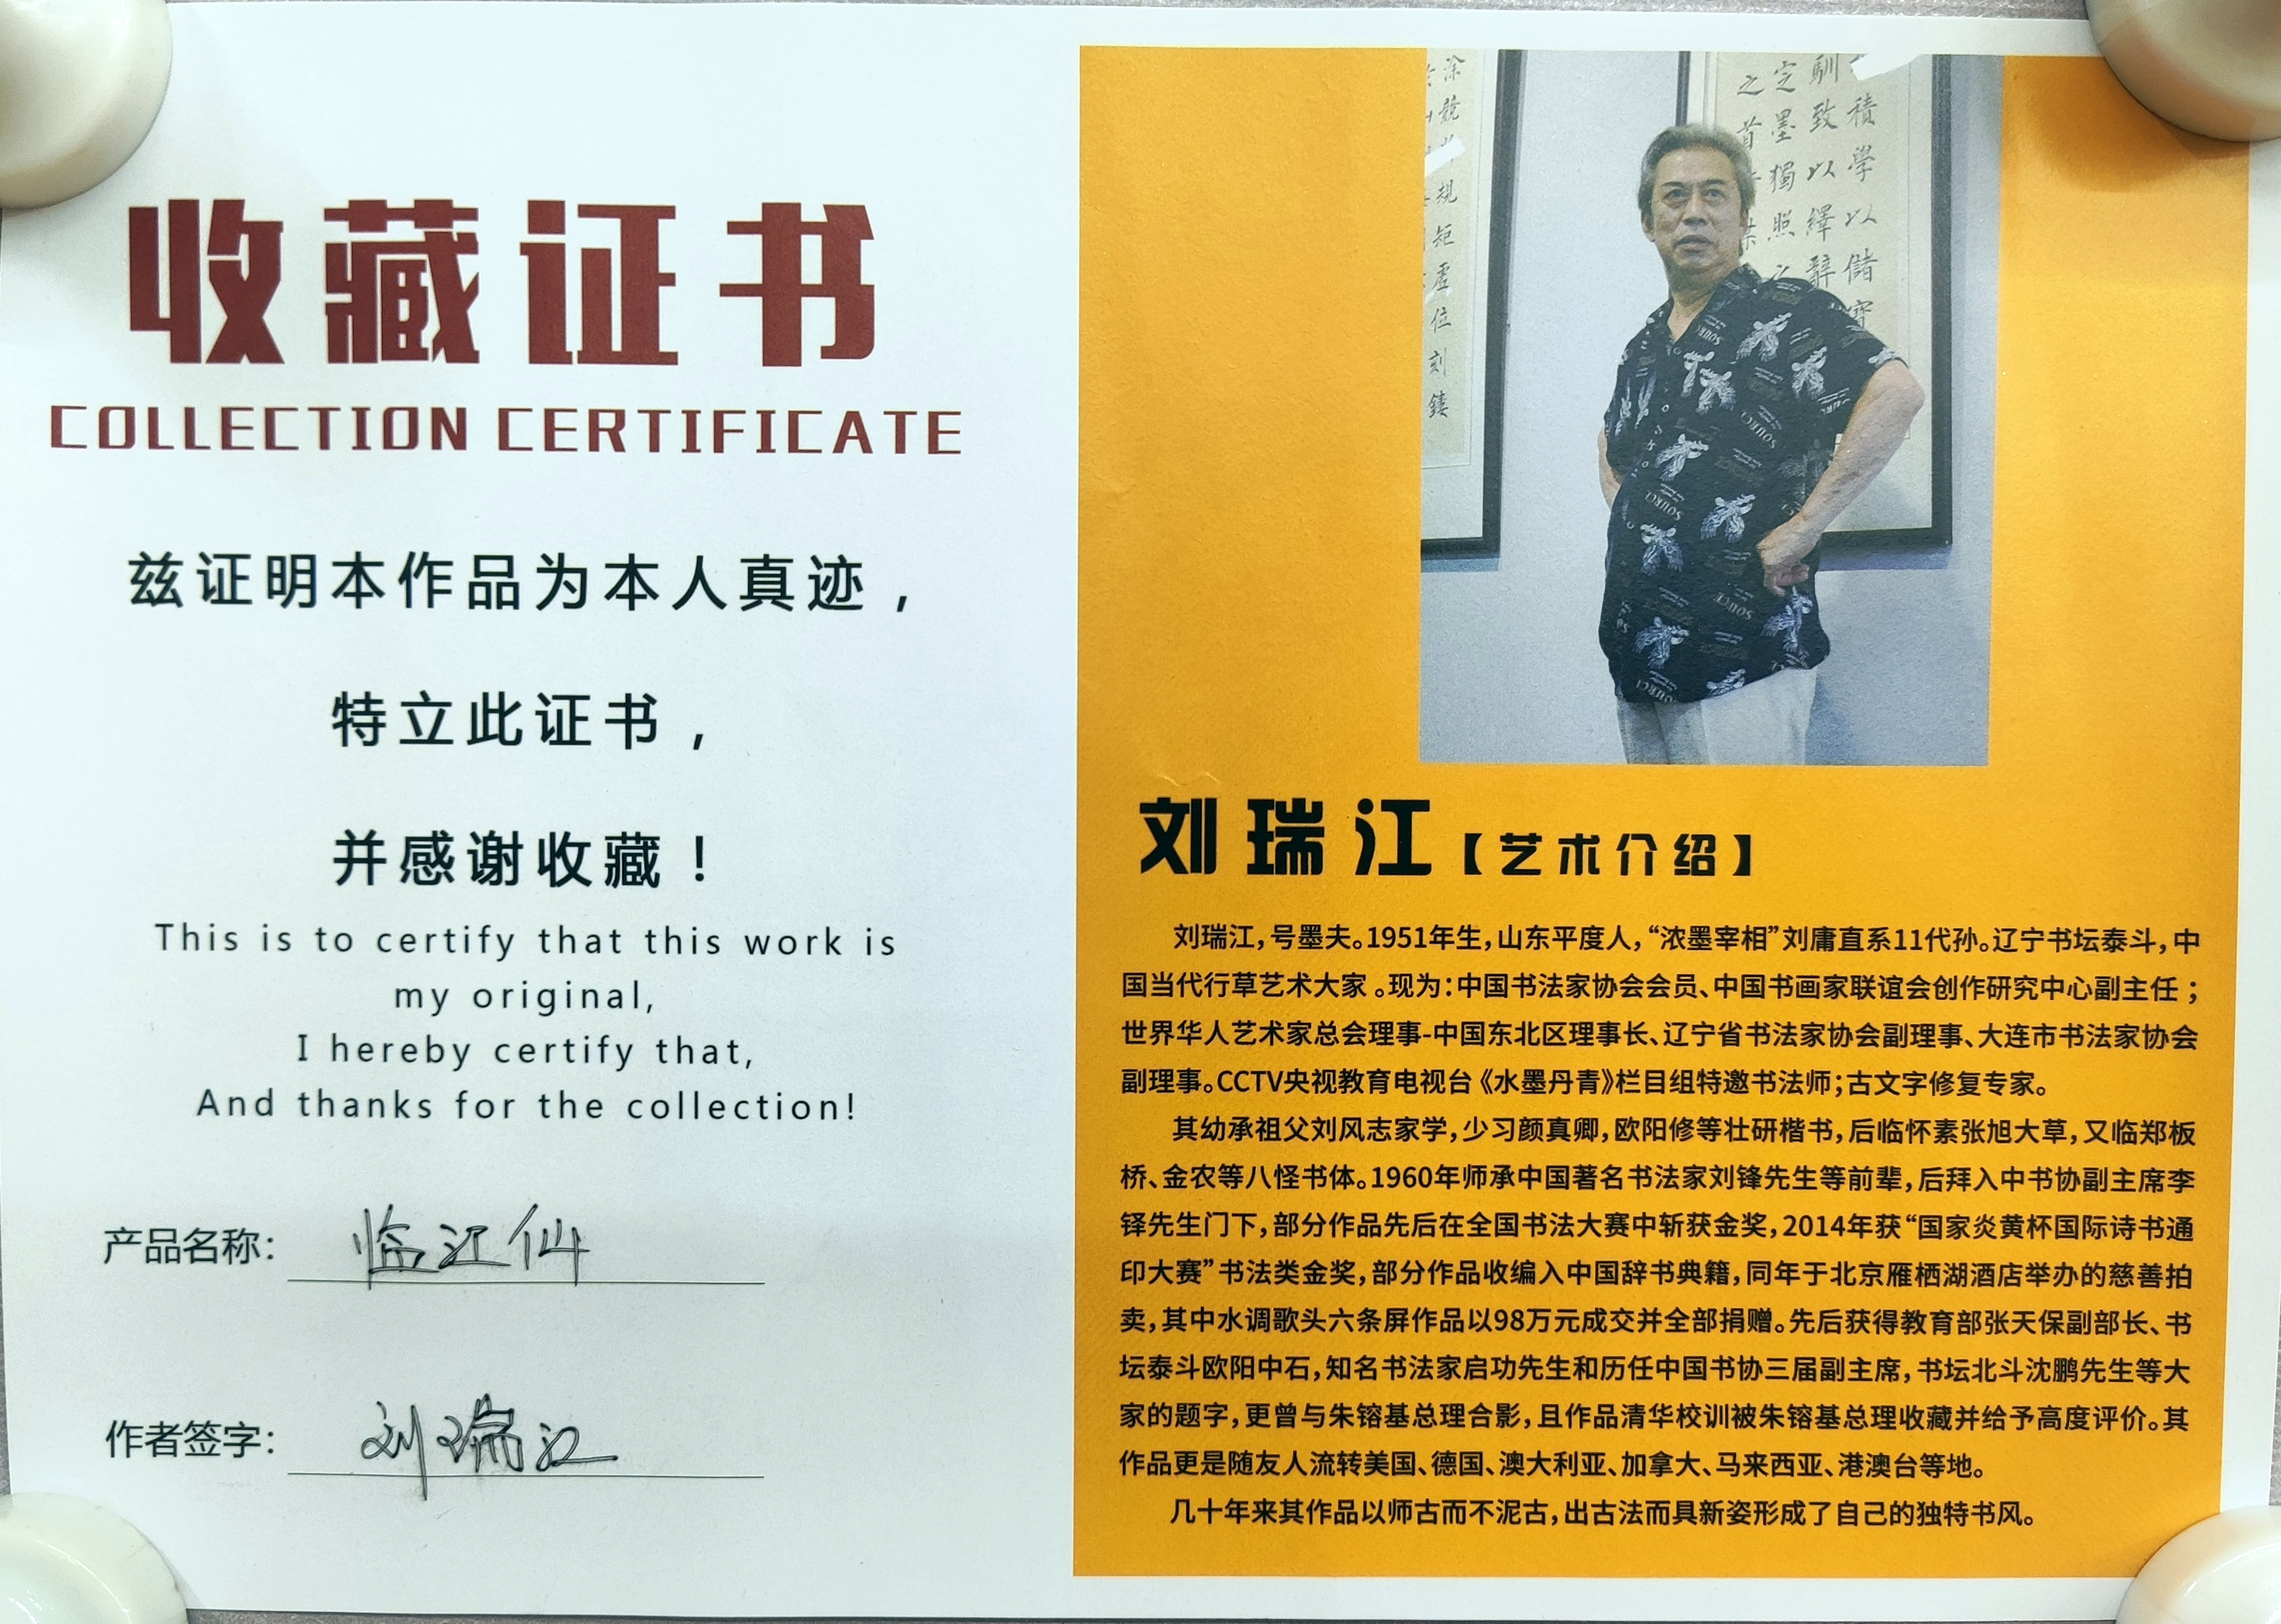 收藏证书
COLLECTION CERTIFICATE
兹证明本作品为本人真迹，
特立此证书，
并感谢收藏！
This is to certify that this work is
my original,
I hereby certify that,
And thanks for the collection!
产品名称： 临江仙
作者签字： 刘瑞江
涂
兢
规
矩
虚
位
刻
镂
積學以儲寶
馴致以繹辭
定墨獨照之
之首
刘瑞江【艺术介绍】
刘瑞江，号墨夫。1951年生，山东平度人，“浓墨宰相”刘庸直系11代孙。辽宁书坛泰斗，中
国当代行草艺术大家 。现为：中国书法家协会会员、中国书画家联谊会创作研究中心副主任；
世界华人艺术家总会理事-中国东北区理事长、辽宁省书法家协会副理事、大连市书法家协会
副理事。CCTV央视教育电视台《水墨丹青》栏目组特邀书法师；古文字修复专家。
其幼承祖父刘风志家学，少习颜真卿，欧阳修等壮研楷书，后临怀素张旭大草，又临郑板
桥、金农等八怪书体。1960年师承中国著名书法家刘锋先生等前辈，后拜入中书协副主席李
铎先生门下，部分作品先后在全国书法大赛中斩获金奖，2014年获“国家炎黄杯国际诗书通
印大赛”书法类金奖，部分作品收编入中国辞书典籍，同年于北京雁栖湖酒店举办的慈善拍
卖，其中水调歌头六条屏作品以98万元成交并全部捐赠。先后获得教育部张天保副部长、书
坛泰斗欧阳中石，知名书法家启功先生和历任中国书协三届副主席，书坛北斗沈鹏先生等大
家的题字，更曾与朱镕基总理合影，且作品清华校训被朱镕基总理收藏并给予高度评价。其
作品更是随友人流转美国、德国、澳大利亚、加拿大、马来西亚、港澳台等地。
几十年来其作品以师古而不泥古，出古法而具新姿形成了自己的独特书风。